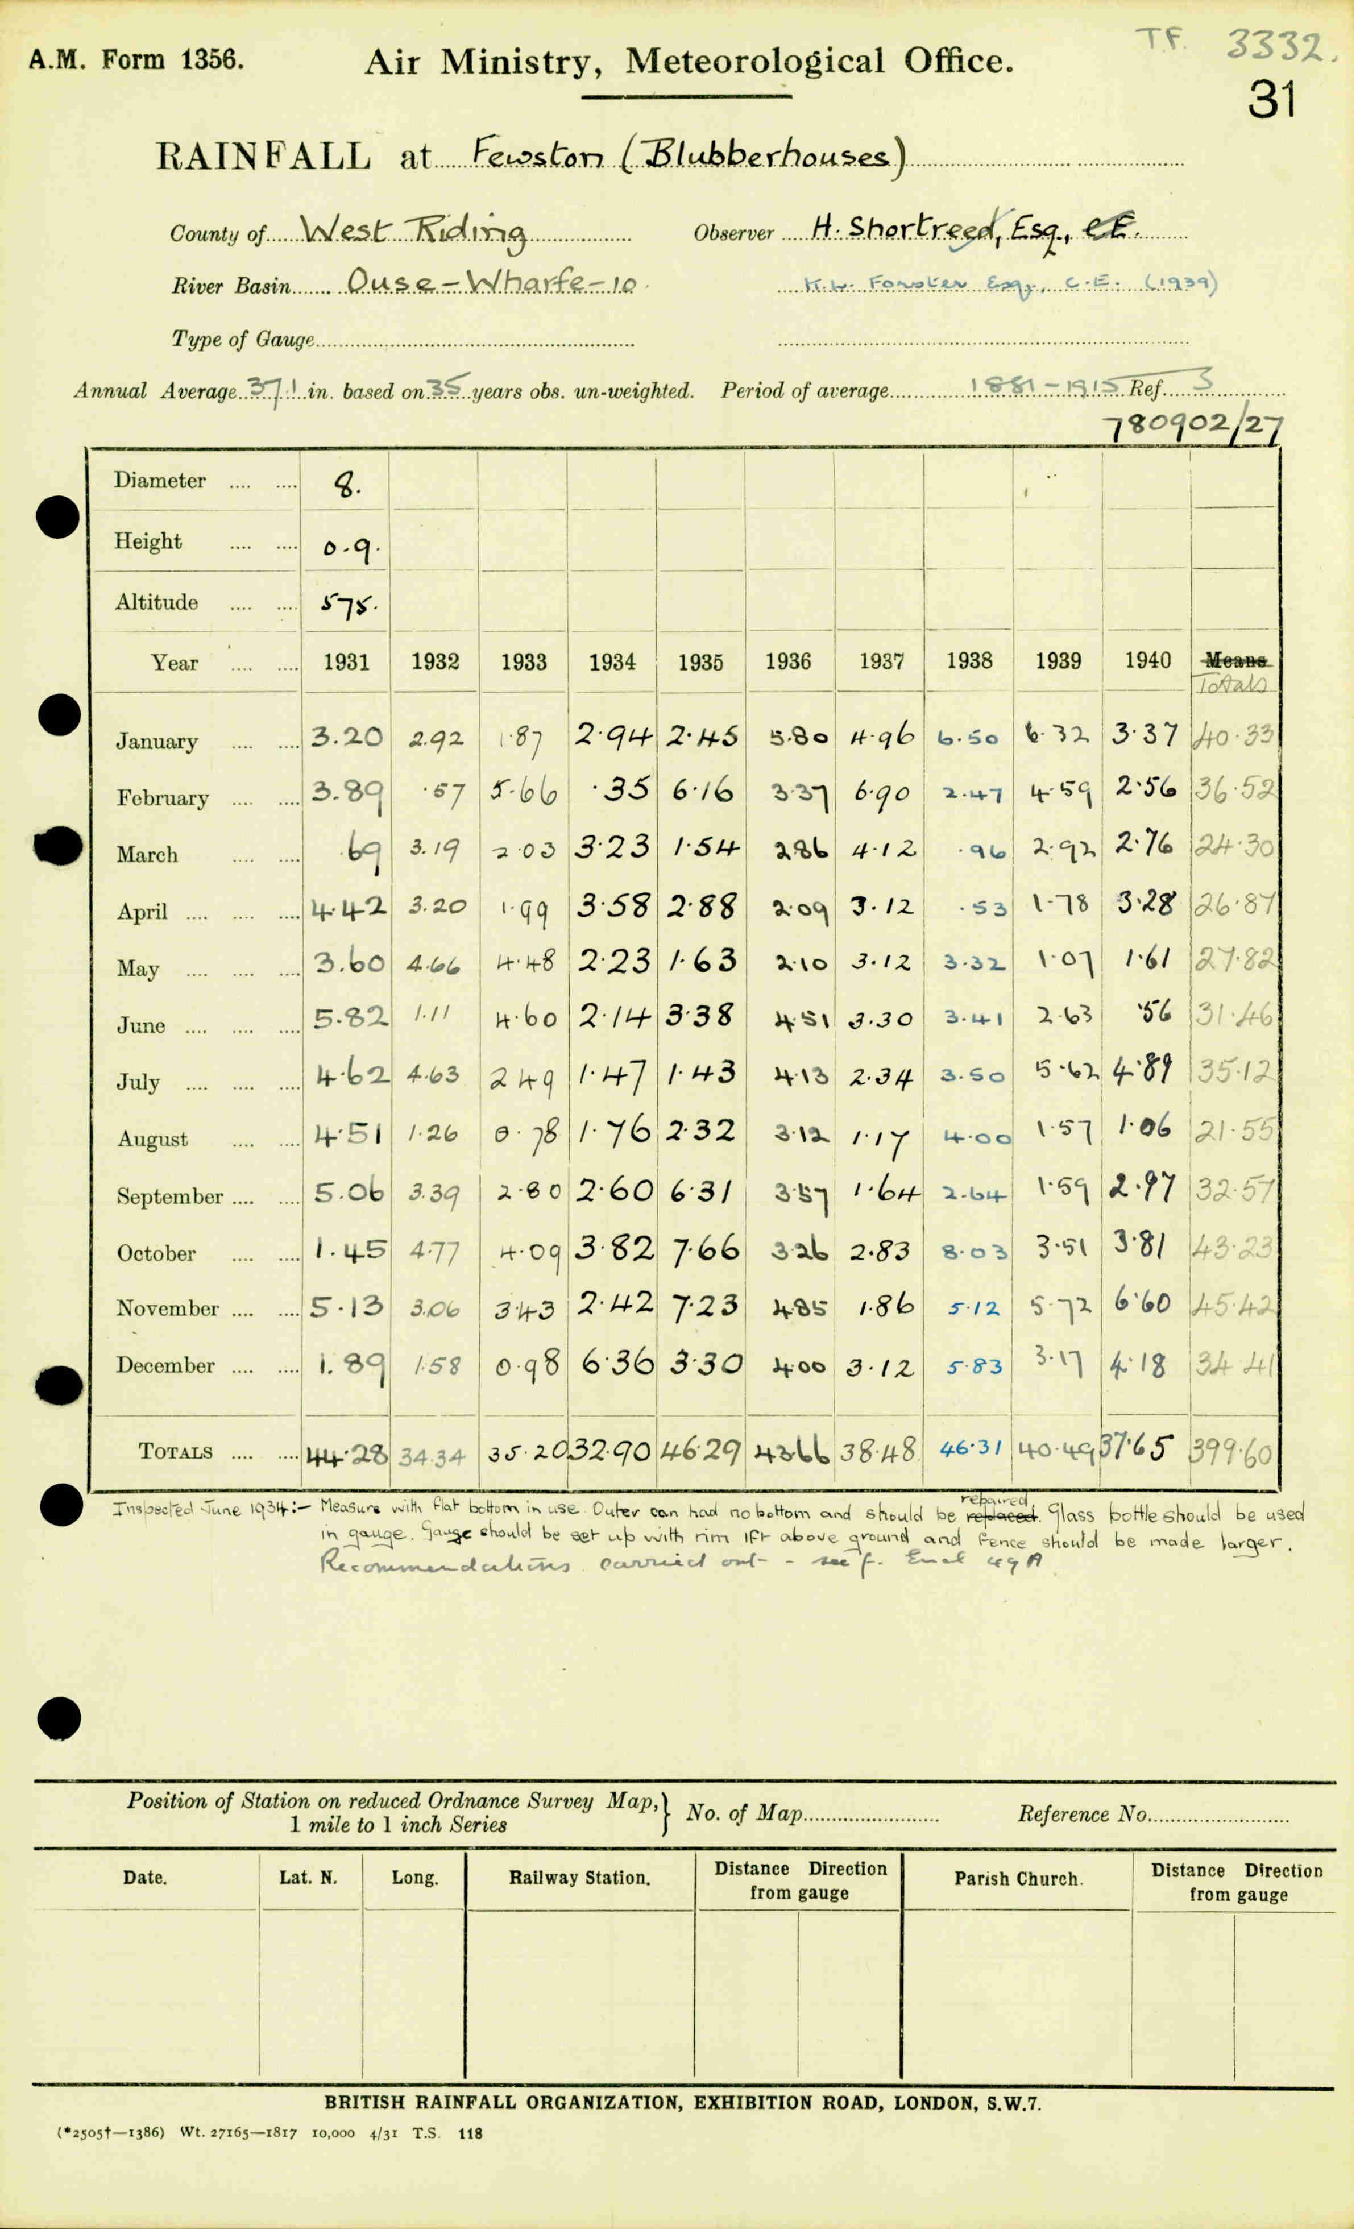 T.F. 3332.
A.M. Form 1356. Air Ministry, Meteorological Office.
31
RAINFALL at Fewston (Blubberhouses)
County of West Riding Observer H. Shortreed, Esq., C.E.
River Basin Ouse - Wharfe - 10. K.W. Forster Esq., C.E. (1939)
Type of Gauge
Annual Average 37.1 in. based on 35 years obs. un-weighted. Period of average 1881-1915 Ref. 3
780902/27
Diameter 8.
Height 0.9.
Altitude 575.
Year 1931 1932 1933 1934 1935 1936 1937 1938 1939 1940 Means
Totals
January 3.20 2.92 1.87 2.94 2.45 5.80 4.96 6.50 6.32 3.37 40.33
February 3.89 .57 5.66 .35 6.16 3.37 6.90 2.47 4.59 2.56 36.52
March .69 3.19 2.03 3.23 1.54 2.86 4.12 .96 2.92 2.76 24.30
April 4.42 3.20 1.99 3.58 2.88 2.09 3.12 .53 1.78 3.28 26.87
May 3.60 4.66 4.48 2.23 1.63 2.10 3.12 3.32 1.07 1.61 27.82
June 5.82 1.11 4.60 2.14 3.38 4.51 3.30 3.41 2.63 .56 31.46
July 4.62 4.63 2.49 1.47 1.43 4.13 2.34 3.50 5.62 4.89 35.12
August 4.51 1.26 0.78 1.76 2.32 3.12 1.17 4.00 1.57 1.06 21.55
September 5.06 3.39 2.80 2.60 6.31 3.57 1.64 2.64 1.59 2.97 32.57
October 1.45 4.77 4.09 3.82 7.66 3.26 2.83 8.03 3.51 3.81 43.23
November 5.13 3.06 3.43 2.42 7.23 4.85 1.86 5.12 5.72 6.60 45.42
December 1.89 1.58 0.98 6.36 3.30 4.00 3.12 5.83 3.17 4.18 34.41
TOTALS 44.28 34.34 35.20 32.90 46.29 43.66 38.48 46.31 40.49 37.65 399.60
Inspected June 1934:- Measure with flat bottom in use. Outer can had no bottom and should be replaced. repaired. Glass bottle should be used
in gauge. Gauge should be set up with rim 1ft above ground and fence should be made larger.
Recommendations carried out - see f. Encl 49A
Position of Station on reduced Ordnance Survey Map, 1 mile to 1 inch Series } No. of Map Reference No.
Date. Lat. N. Long. Railway Station. Distance Direction from gauge Parish Church. Distance Direction from gauge
BRITISH RAINFALL ORGANIZATION, EXHIBITION ROAD, LONDON, S.W.7.
(*2505†—1386) Wt. 27165—1817 10,000 4/31 T.S. 118